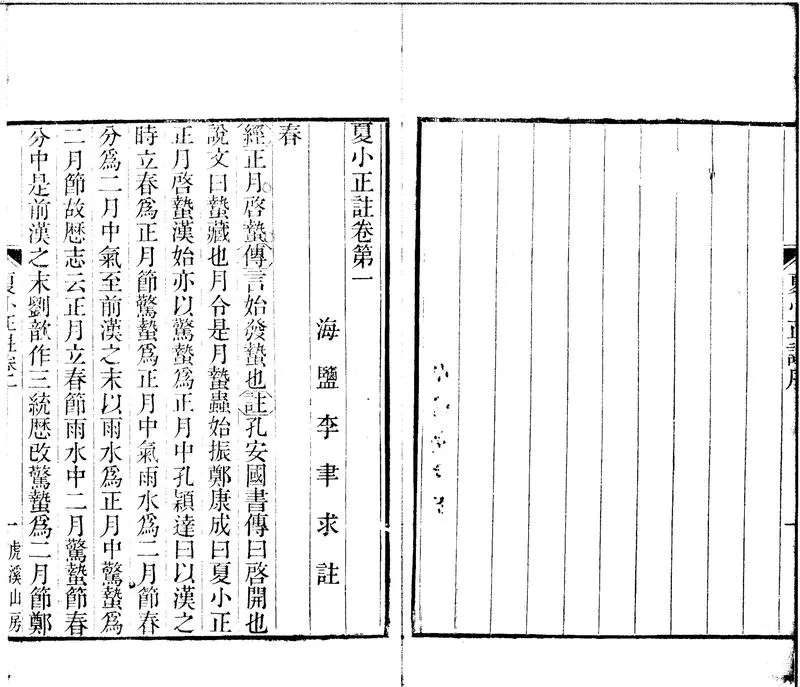 夏小正註序
一
夏小正註卷第一
海鹽李聿求註
春
經正月啓蟄傳言始發蟄也註孔安國書傳曰啓開也
說文曰蟄藏也月令是月蟄蟲始振鄭康成曰夏小正
正月啓蟄漢始亦以驚蟄爲正月中孔穎達曰以漢之
時立春爲正月節驚蟄爲正月中氣雨水爲二月節春
分爲二月中氣至前漢之末以雨水爲正月中驚蟄爲
二月節故歷志云正月立春節雨水中二月驚蟄節春
分中是前漢之末劉歆作三統歷改驚蟄爲二月節鄭
夏小正註卷一
一
虎溪山房